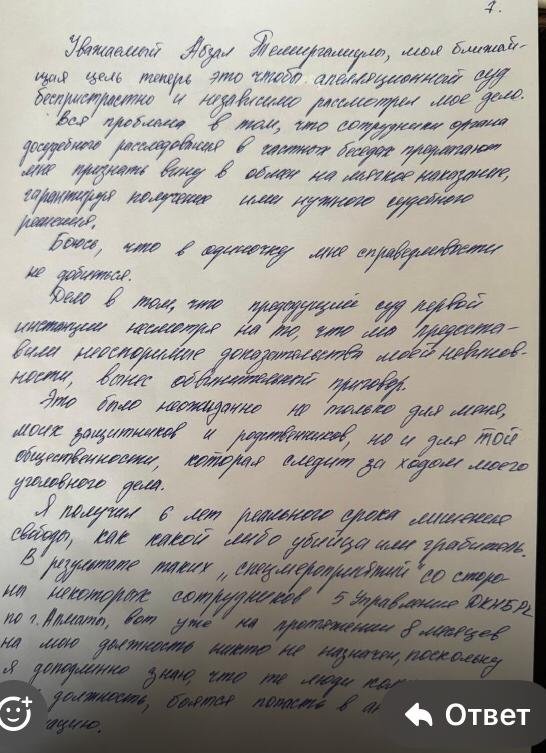 7.
Уважаемый Абзал Темиргалиулы, моя ближай-
щая цель теперь это чтобы апелляционный суд
беспристрастно и независимо рассмотрел мое дело.
Вся проблема в том, что сотрудники органа
досудебного расследования в частных беседах предлагают
мне признать вину в обмен на мягкое наказание,
гарантируя получение ими нужного судебного
решения.
Боюсь, что в одиночку мне справедливости
не добиться.
Дело в том, что предыдущий суд первой
инстанции несмотря на то, что мы предоста-
вили неоспоримые доказательства моей невинов-
ности, вынес обвинительный приговор.
Это было неожиданно не только для меня,
моих защитников и родственников, но и для той
общественности, которая следит за ходом моего
уголовного дела.
Я получил 6 лет реального срока лишения
свободы, как какой либо убийца или грабитель.
В результате таких „спецмероприятий" со сторо-
ны некоторых сотрудников 5 Управления ДКНБ РК
по г. Алматы, вот уже на протяжении 8 месяцев
на мою должность никто не назначен, поскольку
я доподлинно знаю, что те люди
должность, боятся попасть в
Ответ